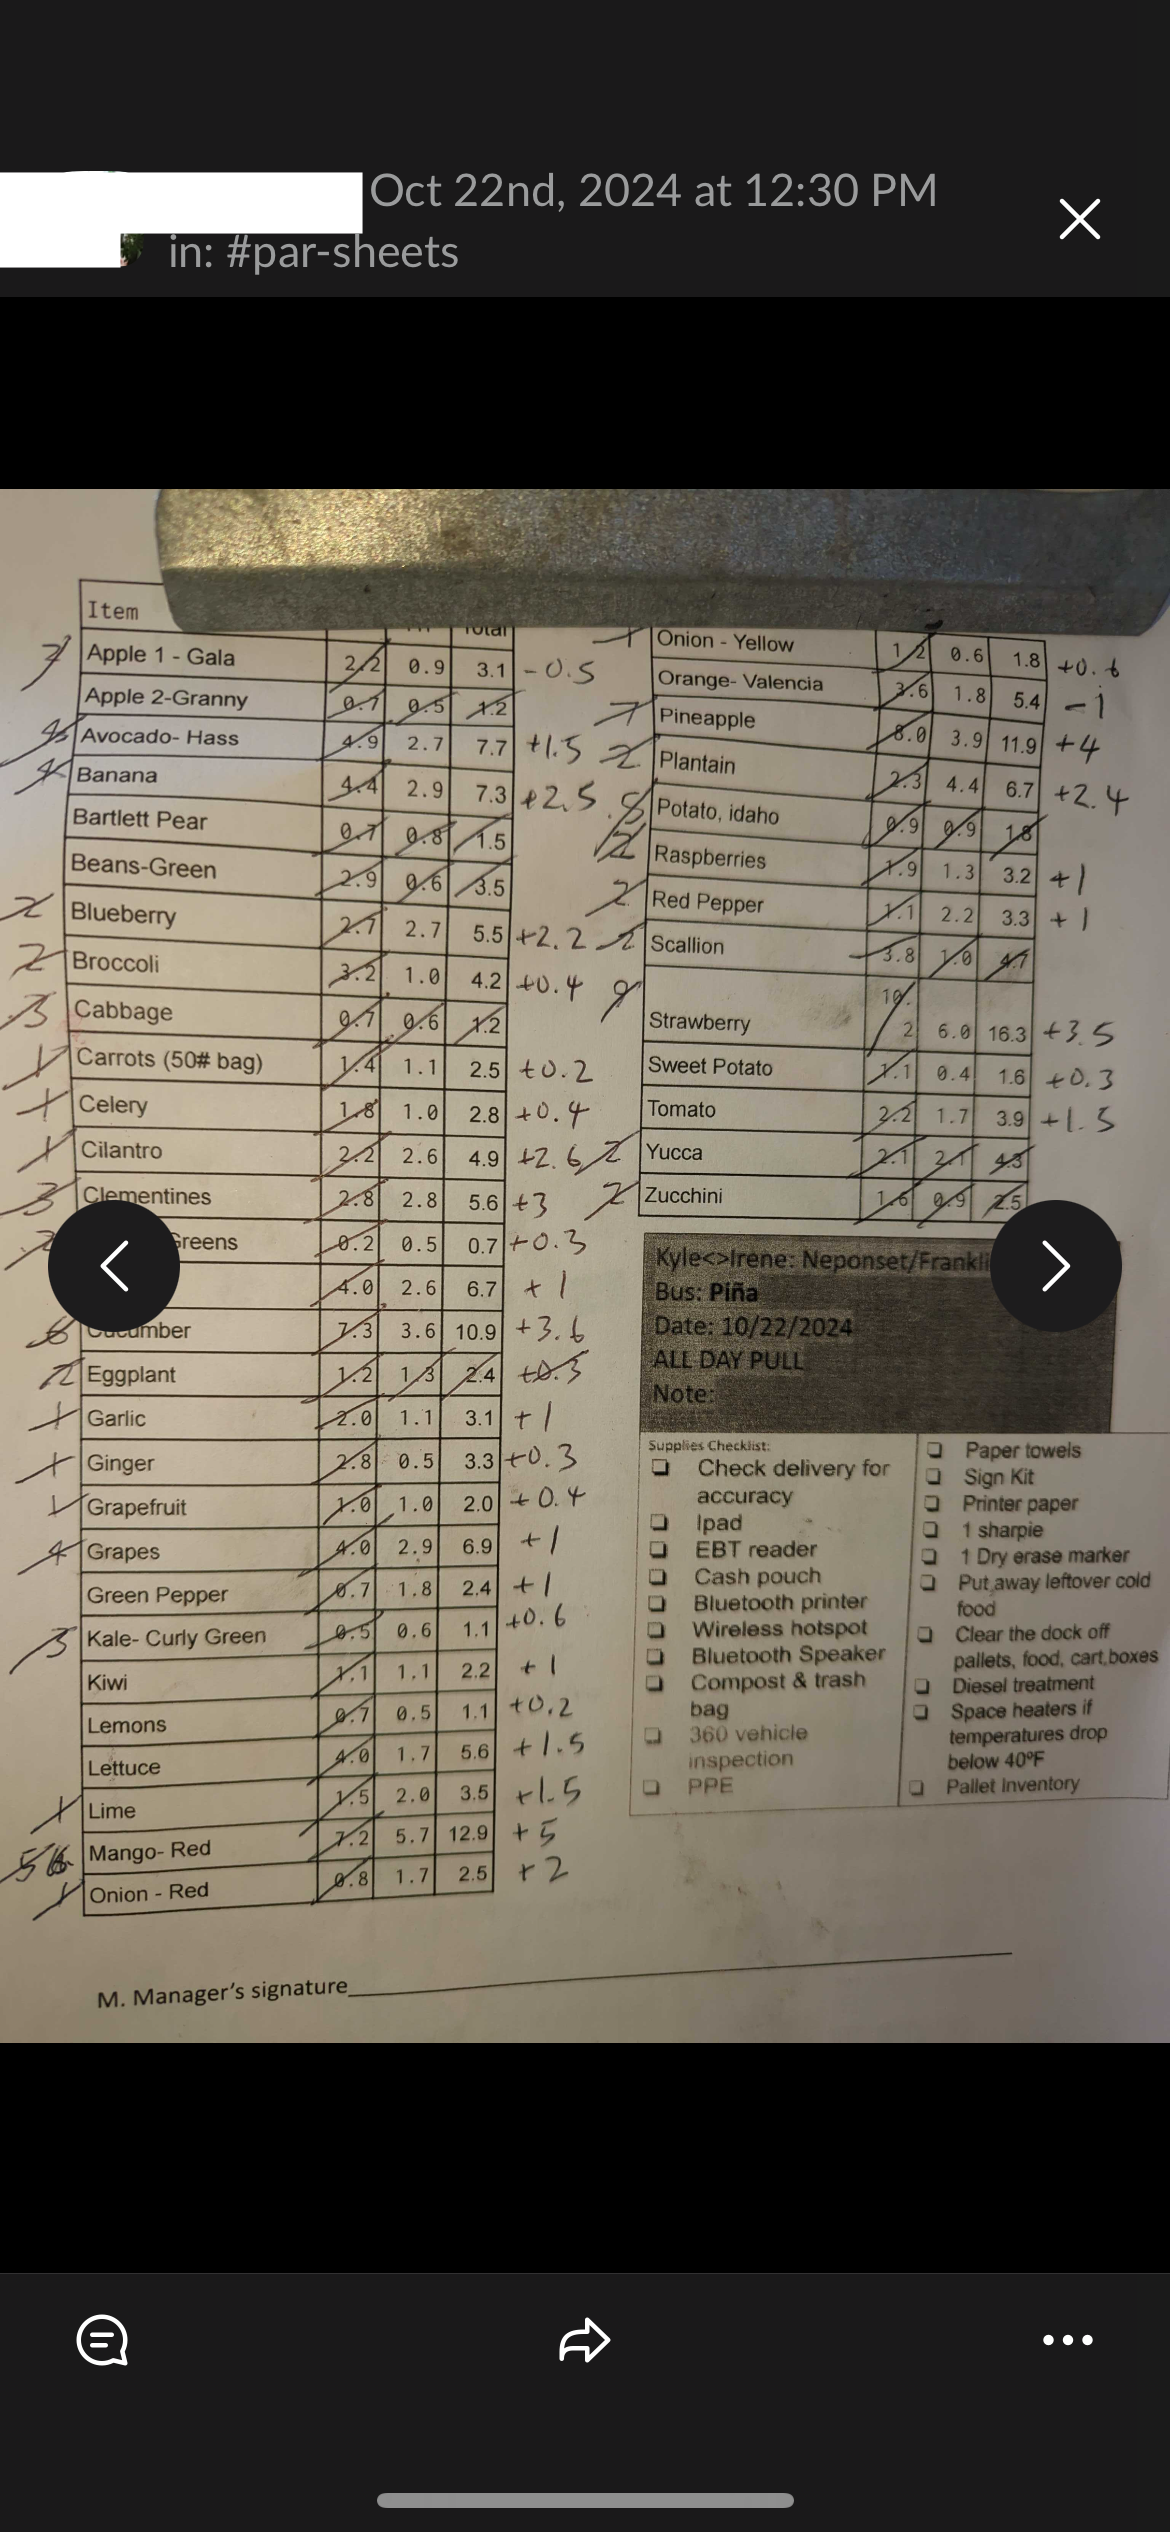 Oct 22nd, 2024 at 12:30 PM
in: #par-sheets
Item Total
Apple 1 - Gala 2.2 0.9 3.1 -0.5
Apple 2-Granny 0.7 0.5 1.2
Avocado- Hass 4.9 2.7 7.7 +1.5
4 Banana 4.4 2.9 7.3 +2.5
Bartlett Pear 0.7 0.8 1.5
Beans-Green 2.9 0.6 3.5
2 Blueberry 2.7 2.7 5.5 +2.2
2 Broccoli 3.2 1.0 4.2 +0.4
3 Cabbage 0.7 0.6 1.2
1 Carrots (50# bag) 1.4 1.1 2.5 +0.2
1 Celery 1.8 1.0 2.8 +0.4
1 Cilantro 2.2 2.6 4.9 +2.6
3 Clementines 2.8 2.8 5.6 +3
Greens 0.2 0.5 0.7 +0.3
4.0 2.6 6.7 +1
6 Cucumber 7.3 3.6 10.9 +3.6
2 Eggplant 1.2 1.3 2.4 +0.3
1 Garlic 2.0 1.1 3.1 +1
1 Ginger 2.8 0.5 3.3 +0.3
1 Grapefruit 1.0 1.0 2.0 +0.4
4 Grapes 4.0 2.9 6.9 +1
Green Pepper 0.7 1.8 2.4 +1
3 Kale- Curly Green 0.5 0.6 1.1 +0.6
Kiwi 1.1 1.1 2.2 +1
Lemons 0.7 0.5 1.1 +0.2
Lettuce 4.0 1.7 5.6 +1.5
1 Lime 1.5 2.0 3.5 +1.5
5 Mango- Red 7.2 5.7 12.9 +5
1 Onion - Red 0.8 1.7 2.5 +2
1 Onion - Yellow 1.2 0.6 1.8 +0.6
Orange- Valencia 3.6 1.8 5.4 -1
7 Pineapple 8.0 3.9 11.9 +4
2 Plantain 2.3 4.4 6.7 +2.4
Potato, idaho 0.9 0.9 1.8
2 Raspberries 1.9 1.3 3.2 +1
2 Red Pepper 1.1 2.2 3.3 +1
2 Scallion 3.8 1.0 4.7
9 Strawberry 10.2 6.0 16.3 +3.5
Sweet Potato 1.1 0.4 1.6 +0.3
Tomato 2.2 1.7 3.9 +1.5
2 Yucca 2.1 2.1 4.3
2 Zucchini 1.6 0.9 2.5
Kyle<>Irene: Neponset/Frankli
Bus: Piña
Date: 10/22/2024
ALL DAY PULL
Note:
Supplies Checklist:
Check delivery for
accuracy
Ipad
EBT reader
Cash pouch
Bluetooth printer
Wireless hotspot
Bluetooth Speaker
Compost & trash
bag
360 vehicle
inspection
PPE
Paper towels
Sign Kit
Printer paper
1 sharpie
1 Dry erase marker
Put away leftover cold
food
Clear the dock off
pallets, food, cart,boxes
Diesel treatment
Space heaters if
temperatures drop
below 40ºF
Pallet Inventory
M. Manager's signature